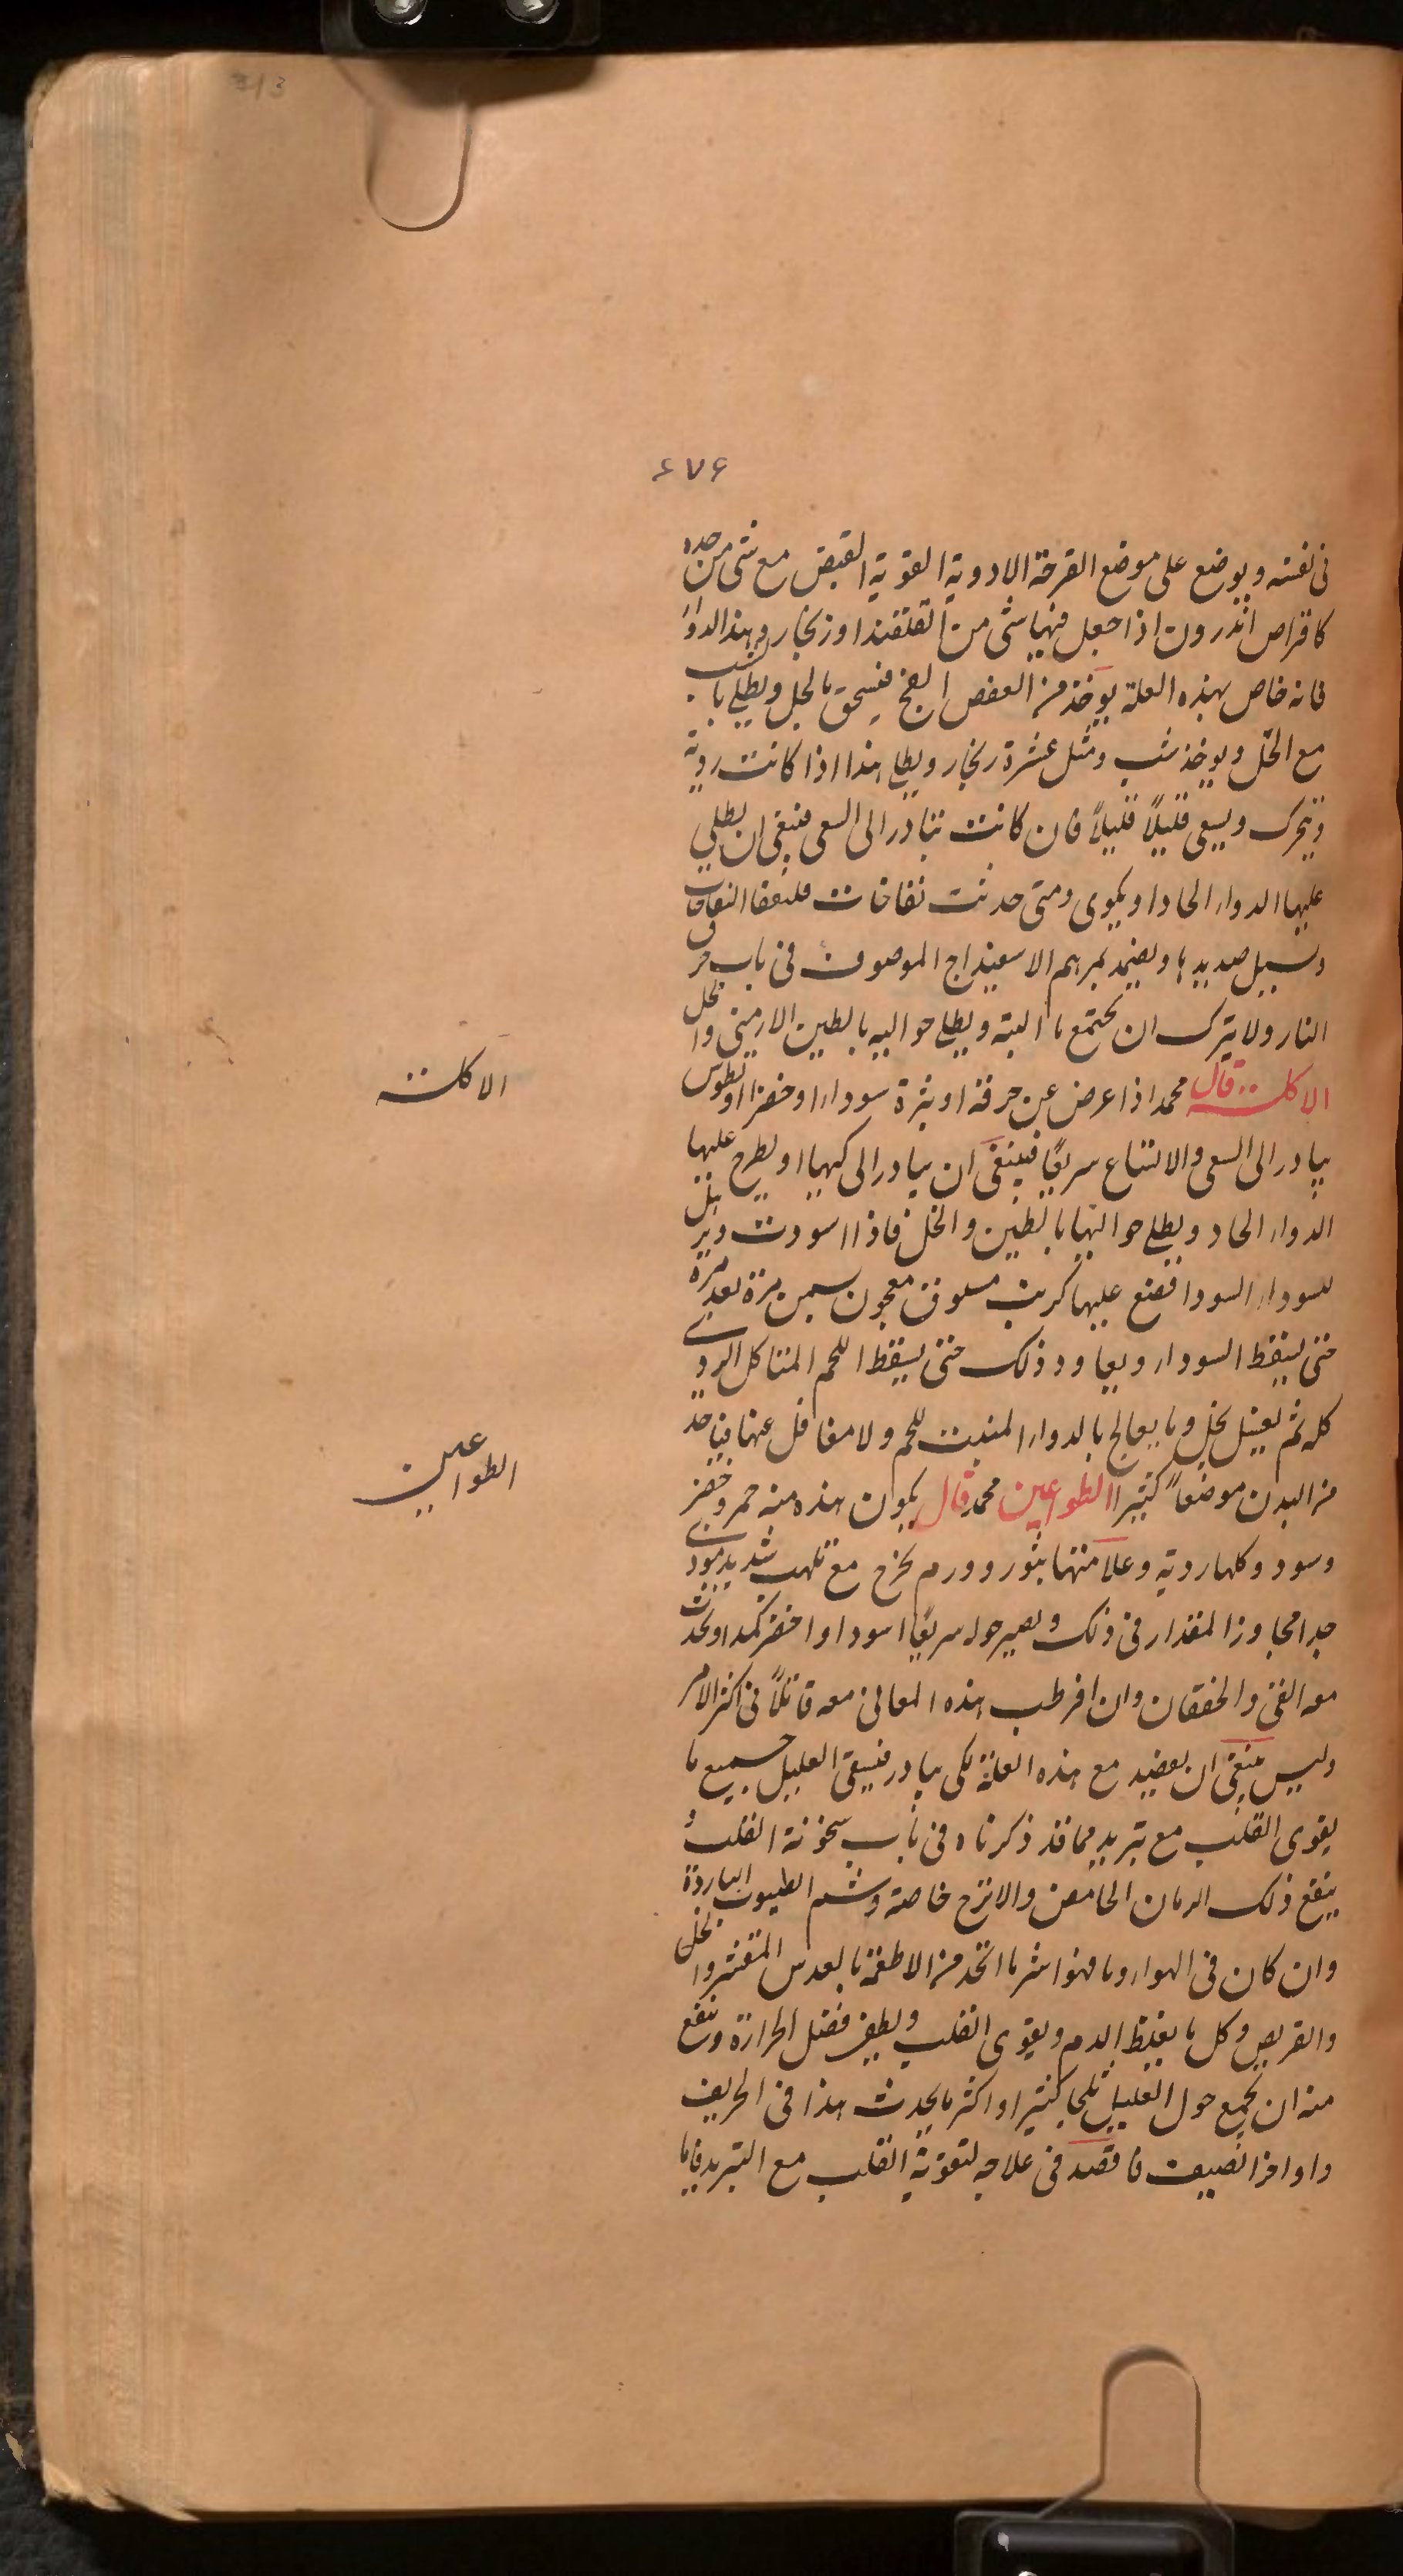 ٤٧٦
فى نفسه و يوضع على موضع القرحة الادوية القوية القبض مع شى من حده
كاقراص اندرون اذا جعل فيها شى من القلقند او زنجار و بهذا الدواء
فانه خاص بهذه العلة يوخذ من العفص الفج فيسحق بالخل و يطلى بالشب
مع الخل و يوخذ شب و مثل عشرة زنجار و يطلى هذا اذا كانت ردية
و تتحرك و يسعى قليلاً قليلاً فان كانت تبادر الى السعى فينبغى ان يطلى
عليها الدواء الحاد او يكوى و متى حدثت نفاخات النفاخات
و يسيل صديدها و يضمد بمرهم الاسفيداج الموصوف فى باب حرق
النار و لا يترك ان يجتمع ما البتة و يطلى حواليه بالطين الارمنى والخل
الاكلة قال محمد اذا عرض عن حرقة او بثرة سوداء او خضرا او
يبادر الى السعى والاتساع سريعاً فينبغى ان يبادر الى كيها او يطرح عليها
الدواء الحاد و يطلى حواليها بالطين والخل فاذا اسودت
السوداء فضع عليها كرنب مسلوق معجون بسمن مرة بعد مرة
حتى يسقط السوداء و يعاود ذلك حتى يسقط اللحم المتاكل الردى
كله ثم يغسل بخل و ما يعالج بالدواء المنبت للحم و لا عنها فياخذ
من البدن موضعاً كثيرا الطواعين محمد قال يكون هذه منه حمر و خضر
و سود و كلها ردية و علامتها بثور و ورم يخرج مع تلهب شديد موذى
جدا مجاوز المقدار فى ذلك و يصير حوله سريعاً اسود او اخضر كمد او يحدث
معه القى والخفقان وان افرطت هذه المعانى معه قاتلاً فى اكثر الامر
و ليس ينبغى ان يفصد مع هذه العلة لكى يبادر فيسقى العليل جميع ما
يقوى القلب مع تبريد مما قد ذكرناه فى باب سخونة القلب و
ينفع ذلك الرمان الحامض والاترج خاصة و شم الطيوب الباردة
وان كان فى الهواء وبا فهو اشر ما اتخذ من الاطعمة بالعدس المقشر والخل
والقريص و كل ما يغلظ الدم و يقوى القلب و يطفى فضل الحرارة و ينفع
منه ان يجمع حول العليل ثلجا كثيرا و اكثر ما يحدث هذا فى الخريف
و اواخر الصيف فاقصد فى علاجه لتقوية القلب مع التبريد فاما
الاكلة
الطواعين